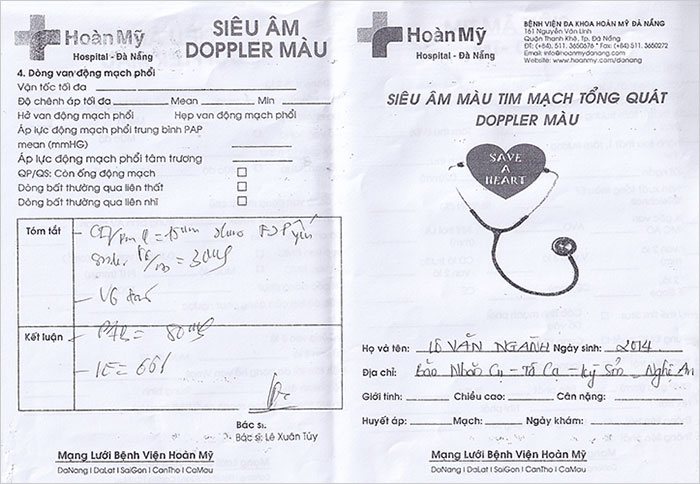 Hoàn Mỹ
Hospital - Đà Nẵng
SIÊU ÂM
DOPPLER MÀU
4. Dòng van động mạch phổi
Vận tốc tối đa
Độ chênh áp tối đa Mean Min
Hở van động mạch phổi Hẹp van động mạch phổi
Áp lực động mạch phổi trung bình PAP
mean (mmHG)
Áp lực động mạch phổi tâm trương
QP/QS: Còn ống động mạch
Dòng bất thường qua liên thất
Dòng bất thường qua liên nhĩ
Tóm tắt
Kết luận
= 80
Bác sĩ:
Bác sĩ: Lê Xuân Túy
Mạng Lưới Bệnh Viện Hoàn Mỹ
DaNang I DaLat I SaiGon I CanTho I CaMau
Hoàn Mỹ
Hospital - Đà Nẵng
BỆNH VIỆN ĐA KHOA HOÀN MỸ ĐÀ NẴNG
161 Nguyễn Văn Linh
Quận Thanh Khê, Tp. Đà Nẵng
ĐT: (+84). 511. 3650676 * Fax: (+84) 511. 3650272
Email: info@hoanmydanang.com
Website: www.hoanmy.com/danang
SIÊU ÂM MÀU TIM MẠCH TỔNG QUÁT
DOPPLER MÀU
SAVE
A
HEART
Họ và tên: LÊ VĂN NGÀNH Ngày sinh: 2014
Địa chỉ: Bản Nhãn Cụ - Tà Cạ - Kỳ Sơn - Nghệ An
Giới tính: Chiều cao: Cân nặng:
Huyết áp: Mạch: Ngày khám:
Mạng Lưới Bệnh Viện Hoàn Mỹ
DaNang I DaLat I SaiGon I CanTho I CaMau